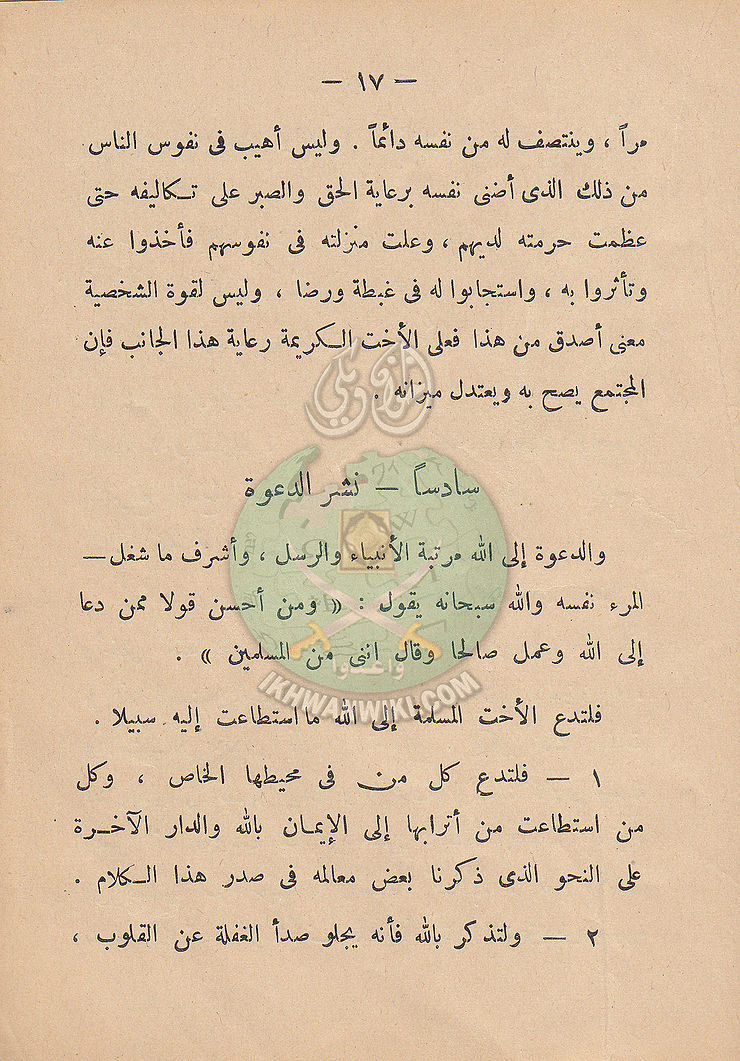 — ١٧ —
مراً ، وينتصف له من نفسه دائماً . وليس أهيب فى نفوس الناس
من ذلك الذى أضنى نفسه برعاية الحق والصبر على تكاليفه حتى
عظمت حرمته لديهم ، وعلت منزلته فى نفوسهم فأخذوا عنه
وتأثروا به ، واستجابوا له فى غبطة ورضا ، وليس لقوة الشخصية
معنى أصدق من هذا فعلى الأخت الكريمة رعاية هذا الجانب فإن
المجتمع يصح به ويعتدل ميزانه .
سادساً — نشر الدعوة
والدعوة إلى الله مرتبة الأنبياء والرسل ، وأشرف ما شغل —
المرء نفسه والله سبحانه يقول : « ومن أحسن قولا ممن دعا
إلى الله وعمل صالحا وقال اننى من المسلمين » .
وأعدوا
IKHWANWIKI.COM
فلتدع الأخت المسلمة إلى الله ما استطاعت إليه سبيلا .
١ — فلتدع كل من فى محيطها الخاص ، وكل
من استطاعت من أترابها إلى الإيمان بالله والدار الآخرة
على النحو الذى ذكرنا بعض معالمه فى صدر هذا الكلام .
٢ — ولتذكر بالله فأنه يجلو صدأ الغفلة عن القلوب ،